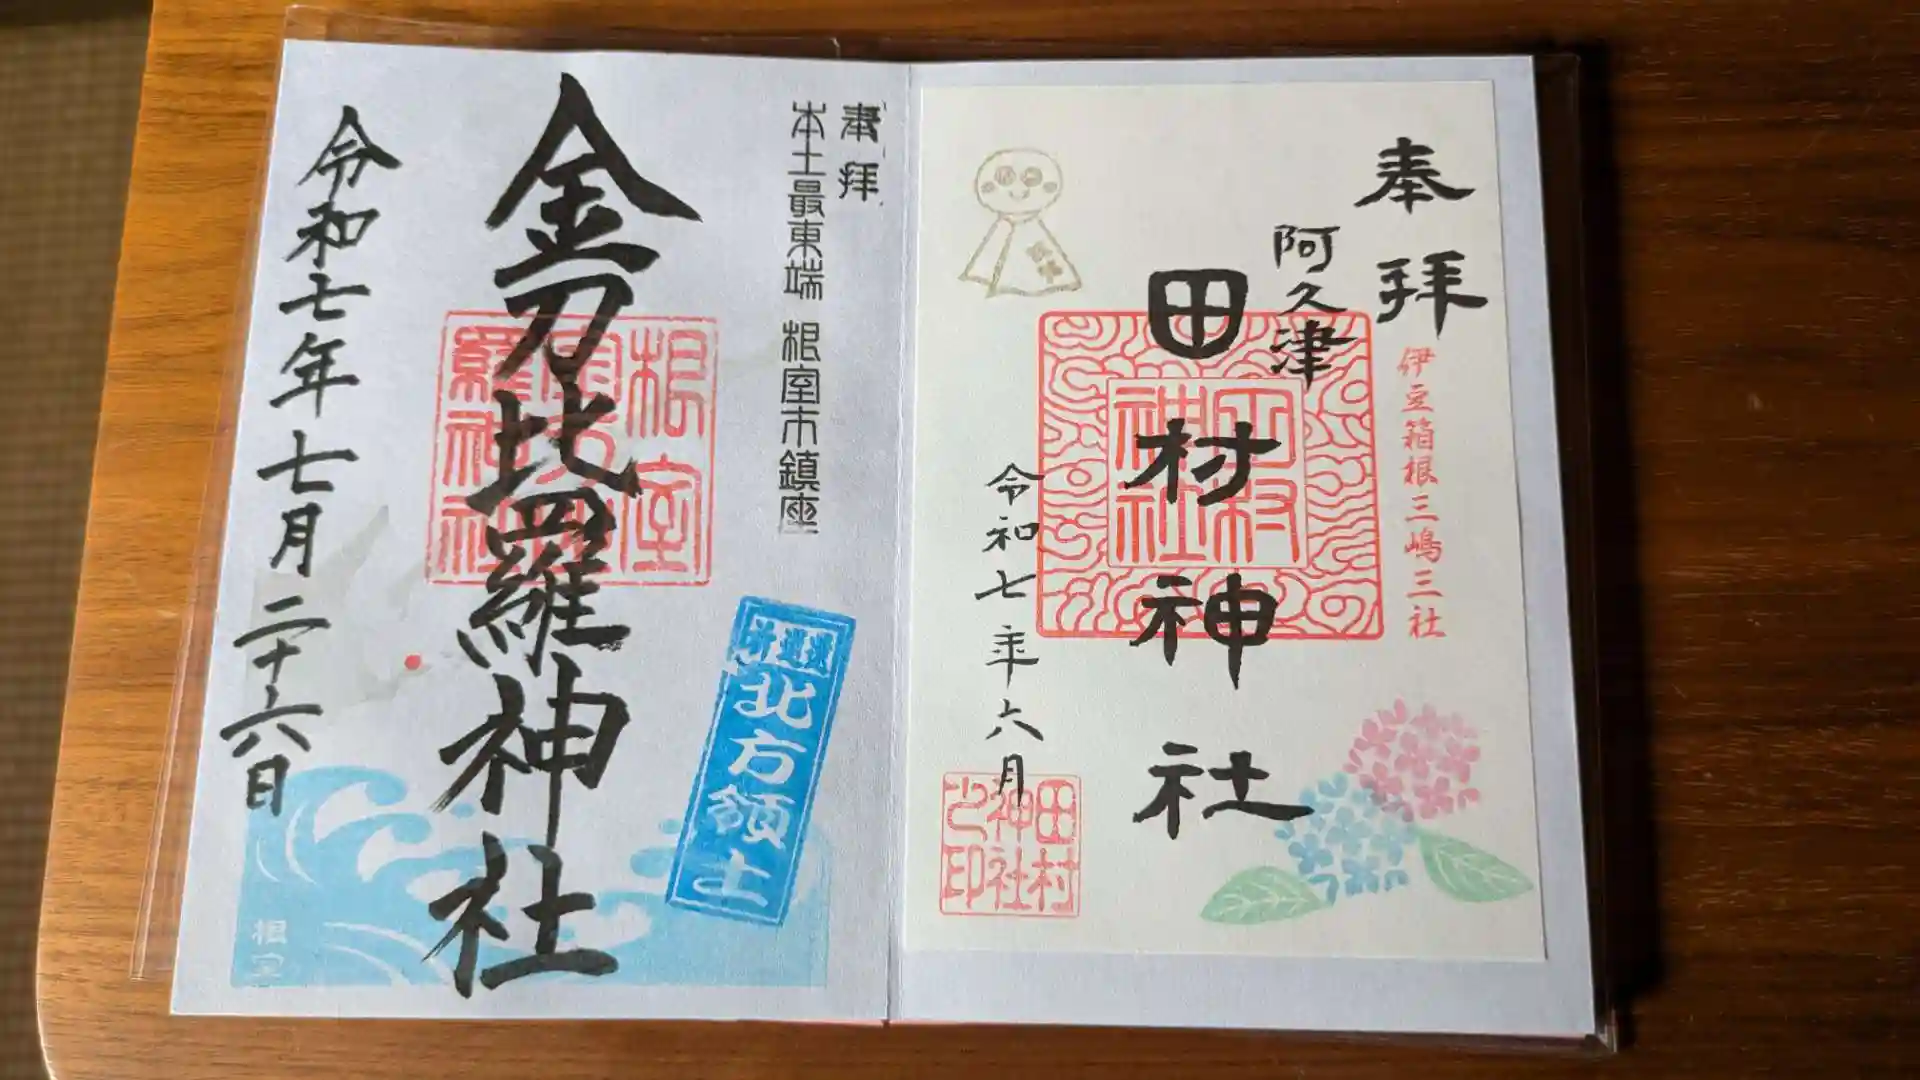 奉拝
阿久津
田村神社
伊豆箱根三嶋三社
田村
神社
令和七年六月
田村
神社
之印
奉拝
本土最東端 根室市鎮座
金刀比羅神社
根室
羅神社
北方領土
令和七年七月二十六日
根室